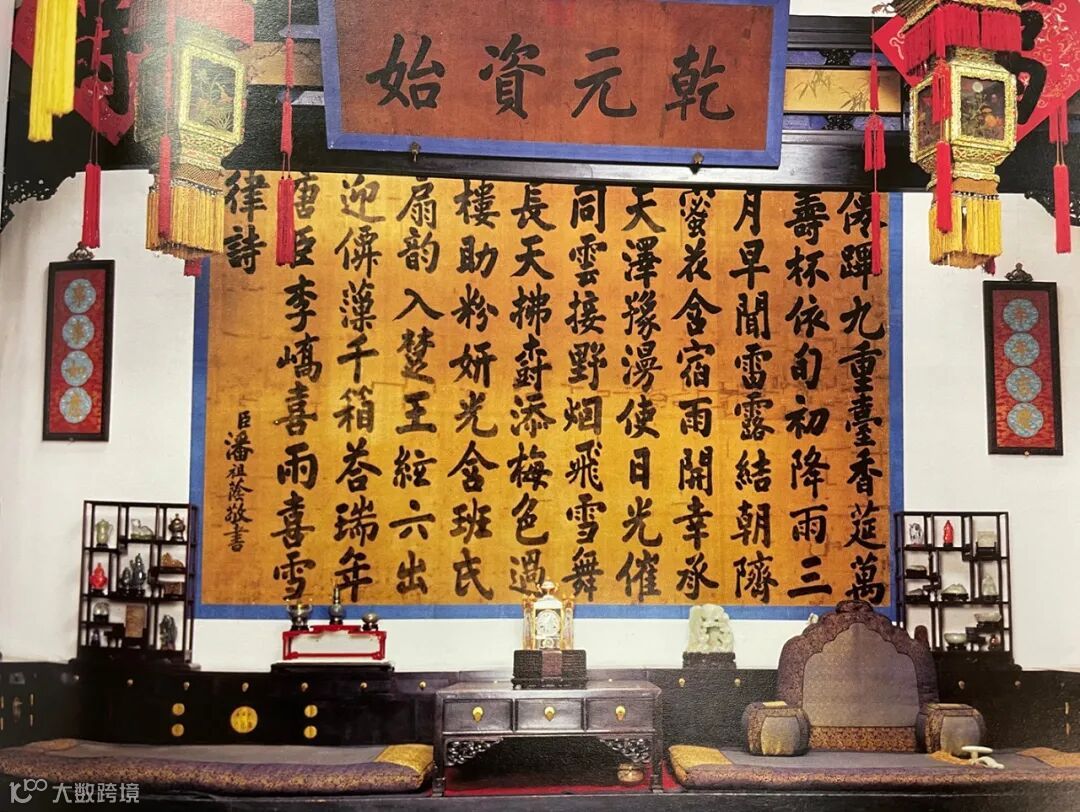 乾元資始
僊蹕九重臺香莚萬
壽杯依旬初降雨三
月早聞雷露結朝隮
蜜花含宿雨開幸承
天澤豫漫使日光催
同雲接野烟飛雪舞
長天拂樹添梅色過
樓助粉妍光含班氏
扇韵入楚王絃六出
迎僊藻千箱荅瑞年
唐臣李嶠喜雨喜雪
律詩
臣潘祖蔭敬書
大数跨境